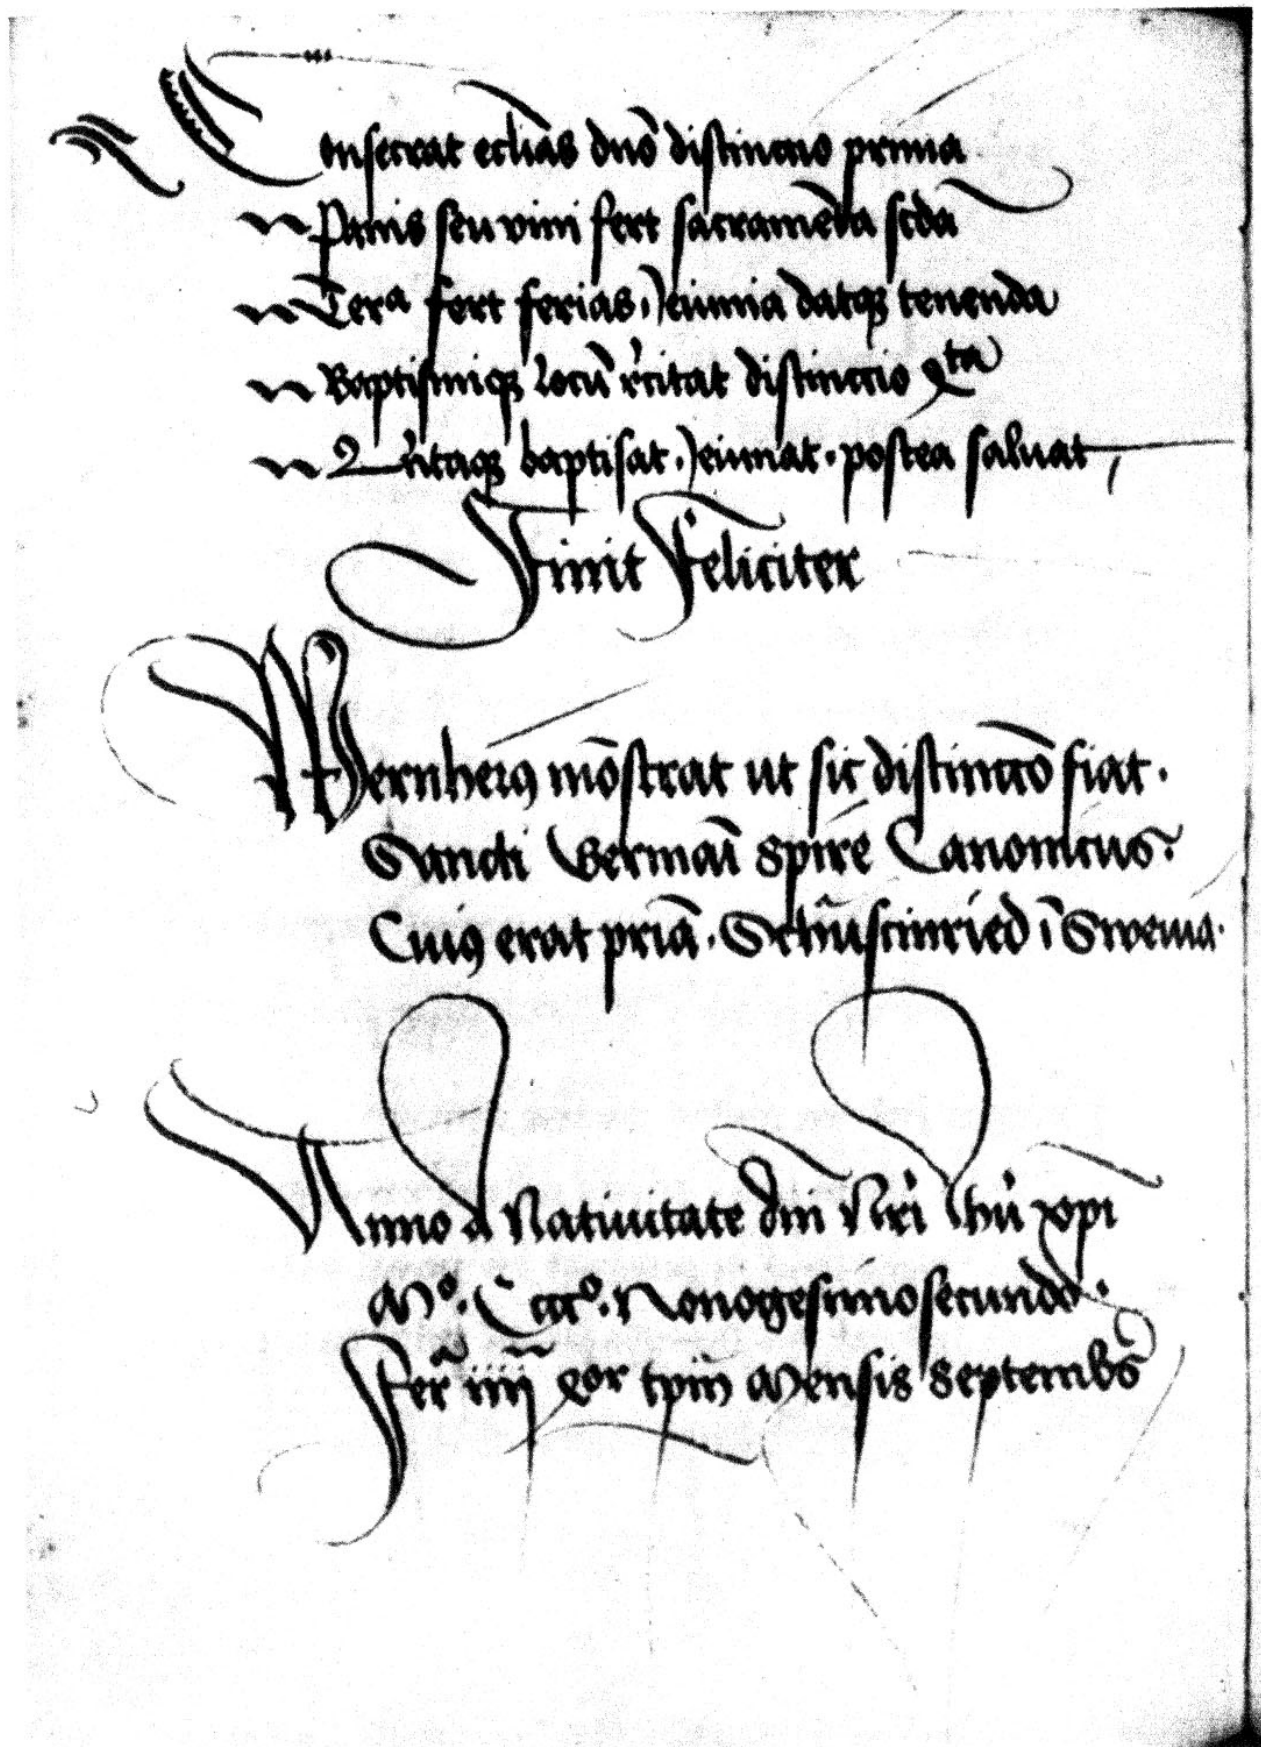 Consecrat eccl̄ias dn̄o distinctio prima
Panis seu vini fert sacramēta scd̄a
Terᵃ fert ferias. Jeiunia datqꝫ tenenda
Baptismiqꝫ locū rꝰcitat distinctio qᵗᵃ
Qꝰītaqꝫ baptisat. Jeiunat. postea saluat
Finit Feliciter
Wernherꝰ mōstrat ut sic distinctō fiat.
Sancti Germaī Spire Canonicus.
Cuiꝰ erat priā. in Sweuia.
Anno a Natiuitate dn̄i Nr̄i Jhū xp̄i
Mᵒ. Cccᵒ. Nonogesimosecundo.
Fer̄ iiij qor tpn̄ Mensis Septembrꝭ